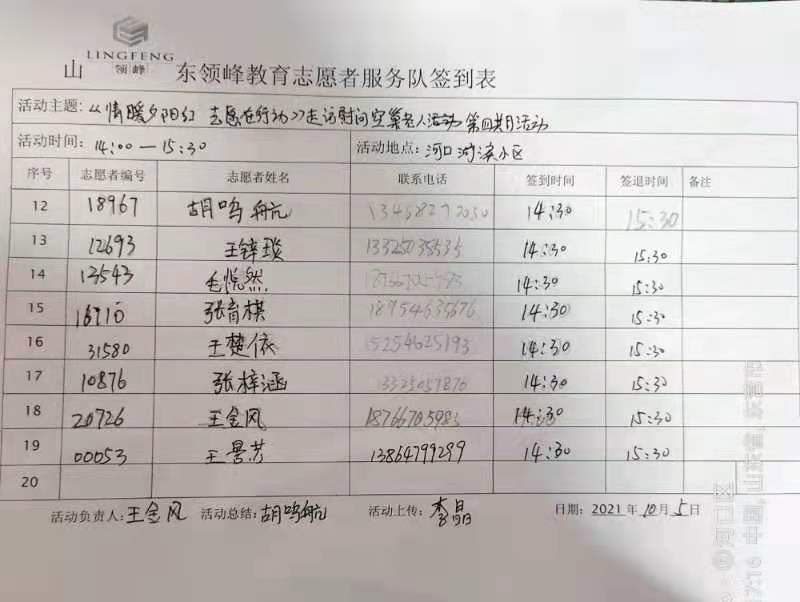 LINGFENG
领峰
山东领峰教育志愿者服务队签到表
活动主题：《情暖夕阳红 志愿在行动》走访慰问空巢老人活动第四共月活动
活动时间：14:00—15:30 活动地点：河口湖滨小区
序号 志愿者编号 志愿者姓名 联系电话 签到时间 签退时间 备注
12 18967 胡鸣航 14:30 15:30
13 12693 王锌琐 13325038535 14:30 15:30
14 13543 毛悦然 14:30 15:30
15 16910 张育棋 18954635676 14:30 15:30
16 31580 王楚依 15254625193 14:30 15:30
17 10876 张梓涵 13325057876 14:30 15:30
18 20726 王金风 18766705983 14:30 15:30
19 00053 王景芳 13864799299 14:30 15:30
20
活动负责人：王金风 活动总结：胡鸣航 活动上传：李晶 日期：2021年10月5日
@河口区
7:16 中国,山东省,东营市